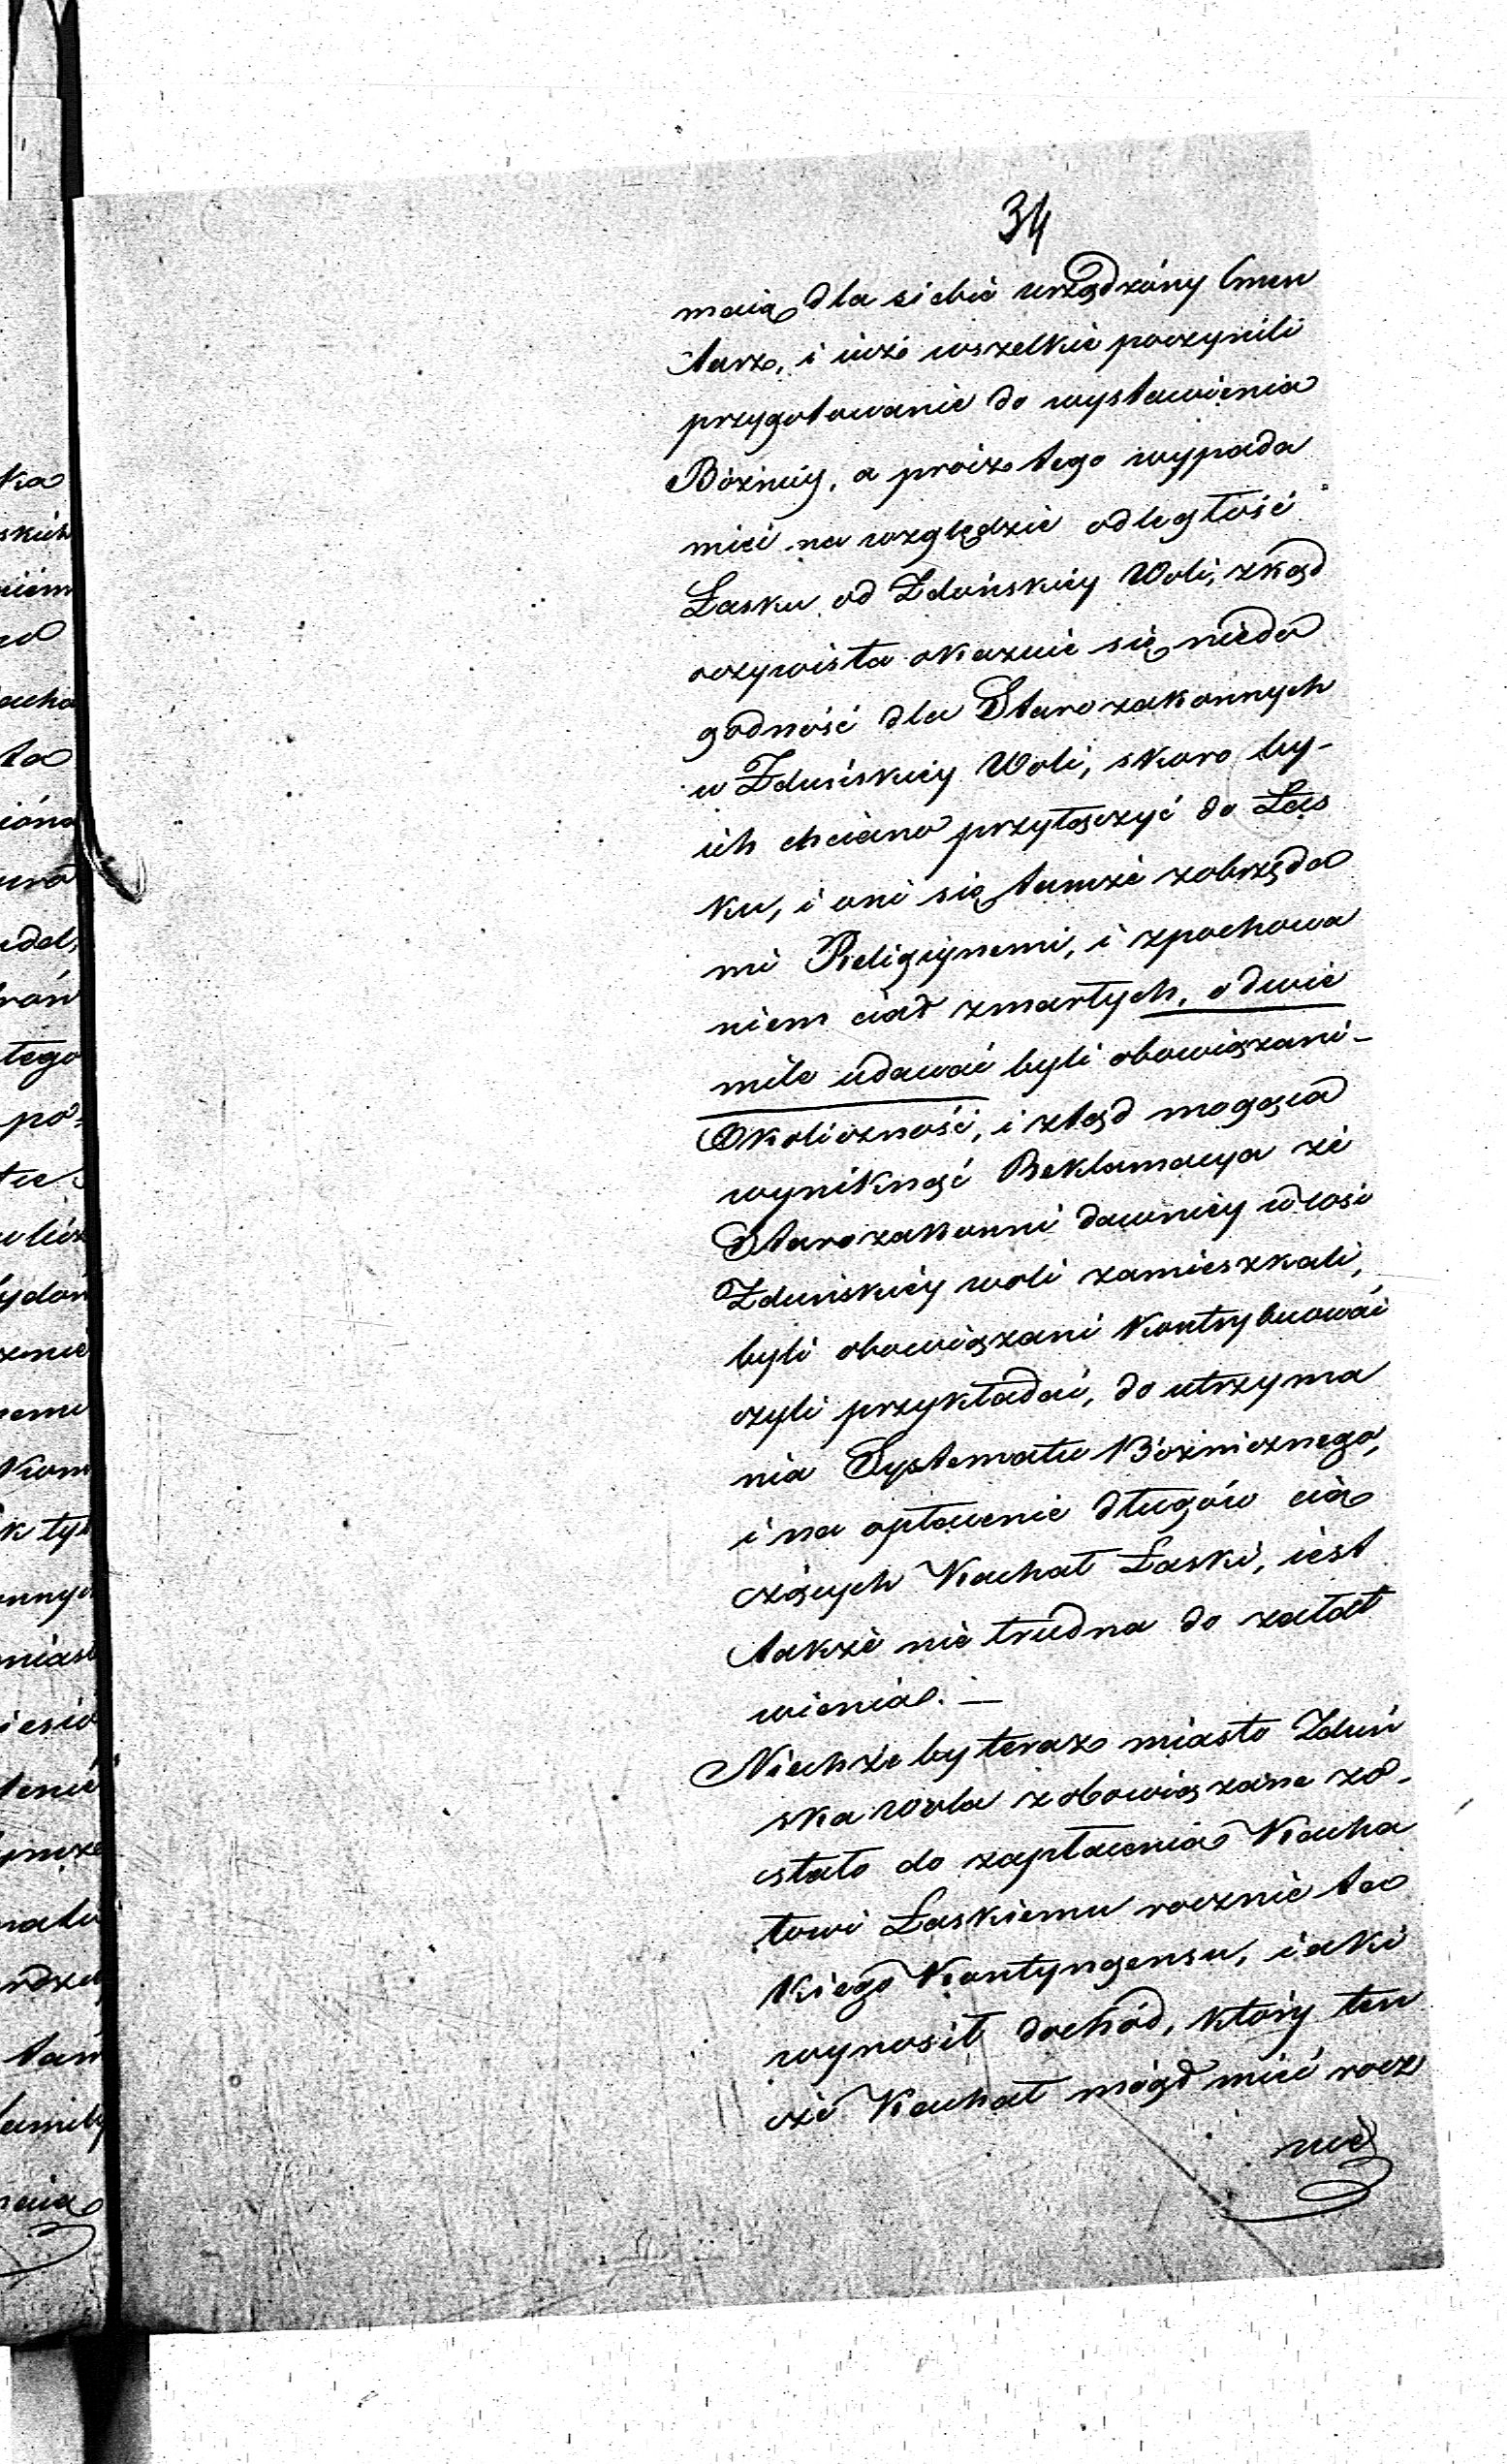 34
maią dla siebie urządzóny Cmen
tarz, i iuż wszelkie poczynili
przygotowanie do wystawienia
Bóżnicy, a prócz tego wypada
mieć na względzie odległość
Łasku od Zduńskiey Woli, zkąd
oczywista okazuie się niedo
godność dla Starozakonnych
w Zduńskiey Woli, skoro by-
ich chciano przyłączyć do Łas
ku, i oni się tamże zobrzęda
mi Religiynemi, i zpochowa
niem ciał zmarłych, o dwie
mile udawać byli obowiązani_
Okoliczność, i ztąd mogąca
wyniknąć Reklamacya że
Starozakonni dawniey w wsi
Zduńskiey woli zamieszkali,
byli obowiązani Kontrybuować
czyli przykładać, do utrzyma
nia Systematu Bóżnicznego,
i na opłacenie długów cią
żących Kachał Łaski, iest
także nie trudna do załat
wienia. —
Niechże by teraz miasto Zduń
ska Wola zobowiązane zo-
stało do zapłacenia Kacha
łowi Łaskiemu rocznie ta
kiego Kontyngensu, iaki
wynosił dochód, który ten
że Kachał mógł mieć rocz
nie
ka
skich
niem
acha
ta
ióna
ura
udal,
tego
po-
wemu
Kom
k tyl
nnych
miast
iesio
tenie
ymże
natu
tań
familij
maią